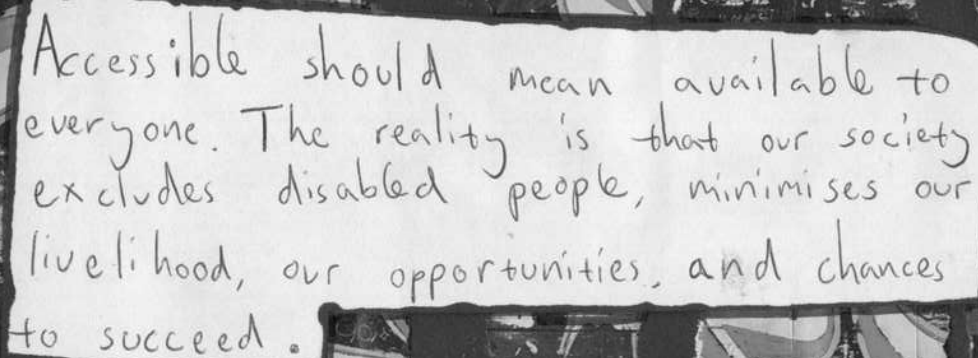 Accessible should mean available to
everyone. The reality is that our society
excludes disabled people, minimises our
livelihood, our opportunities, and chances
to succeed.